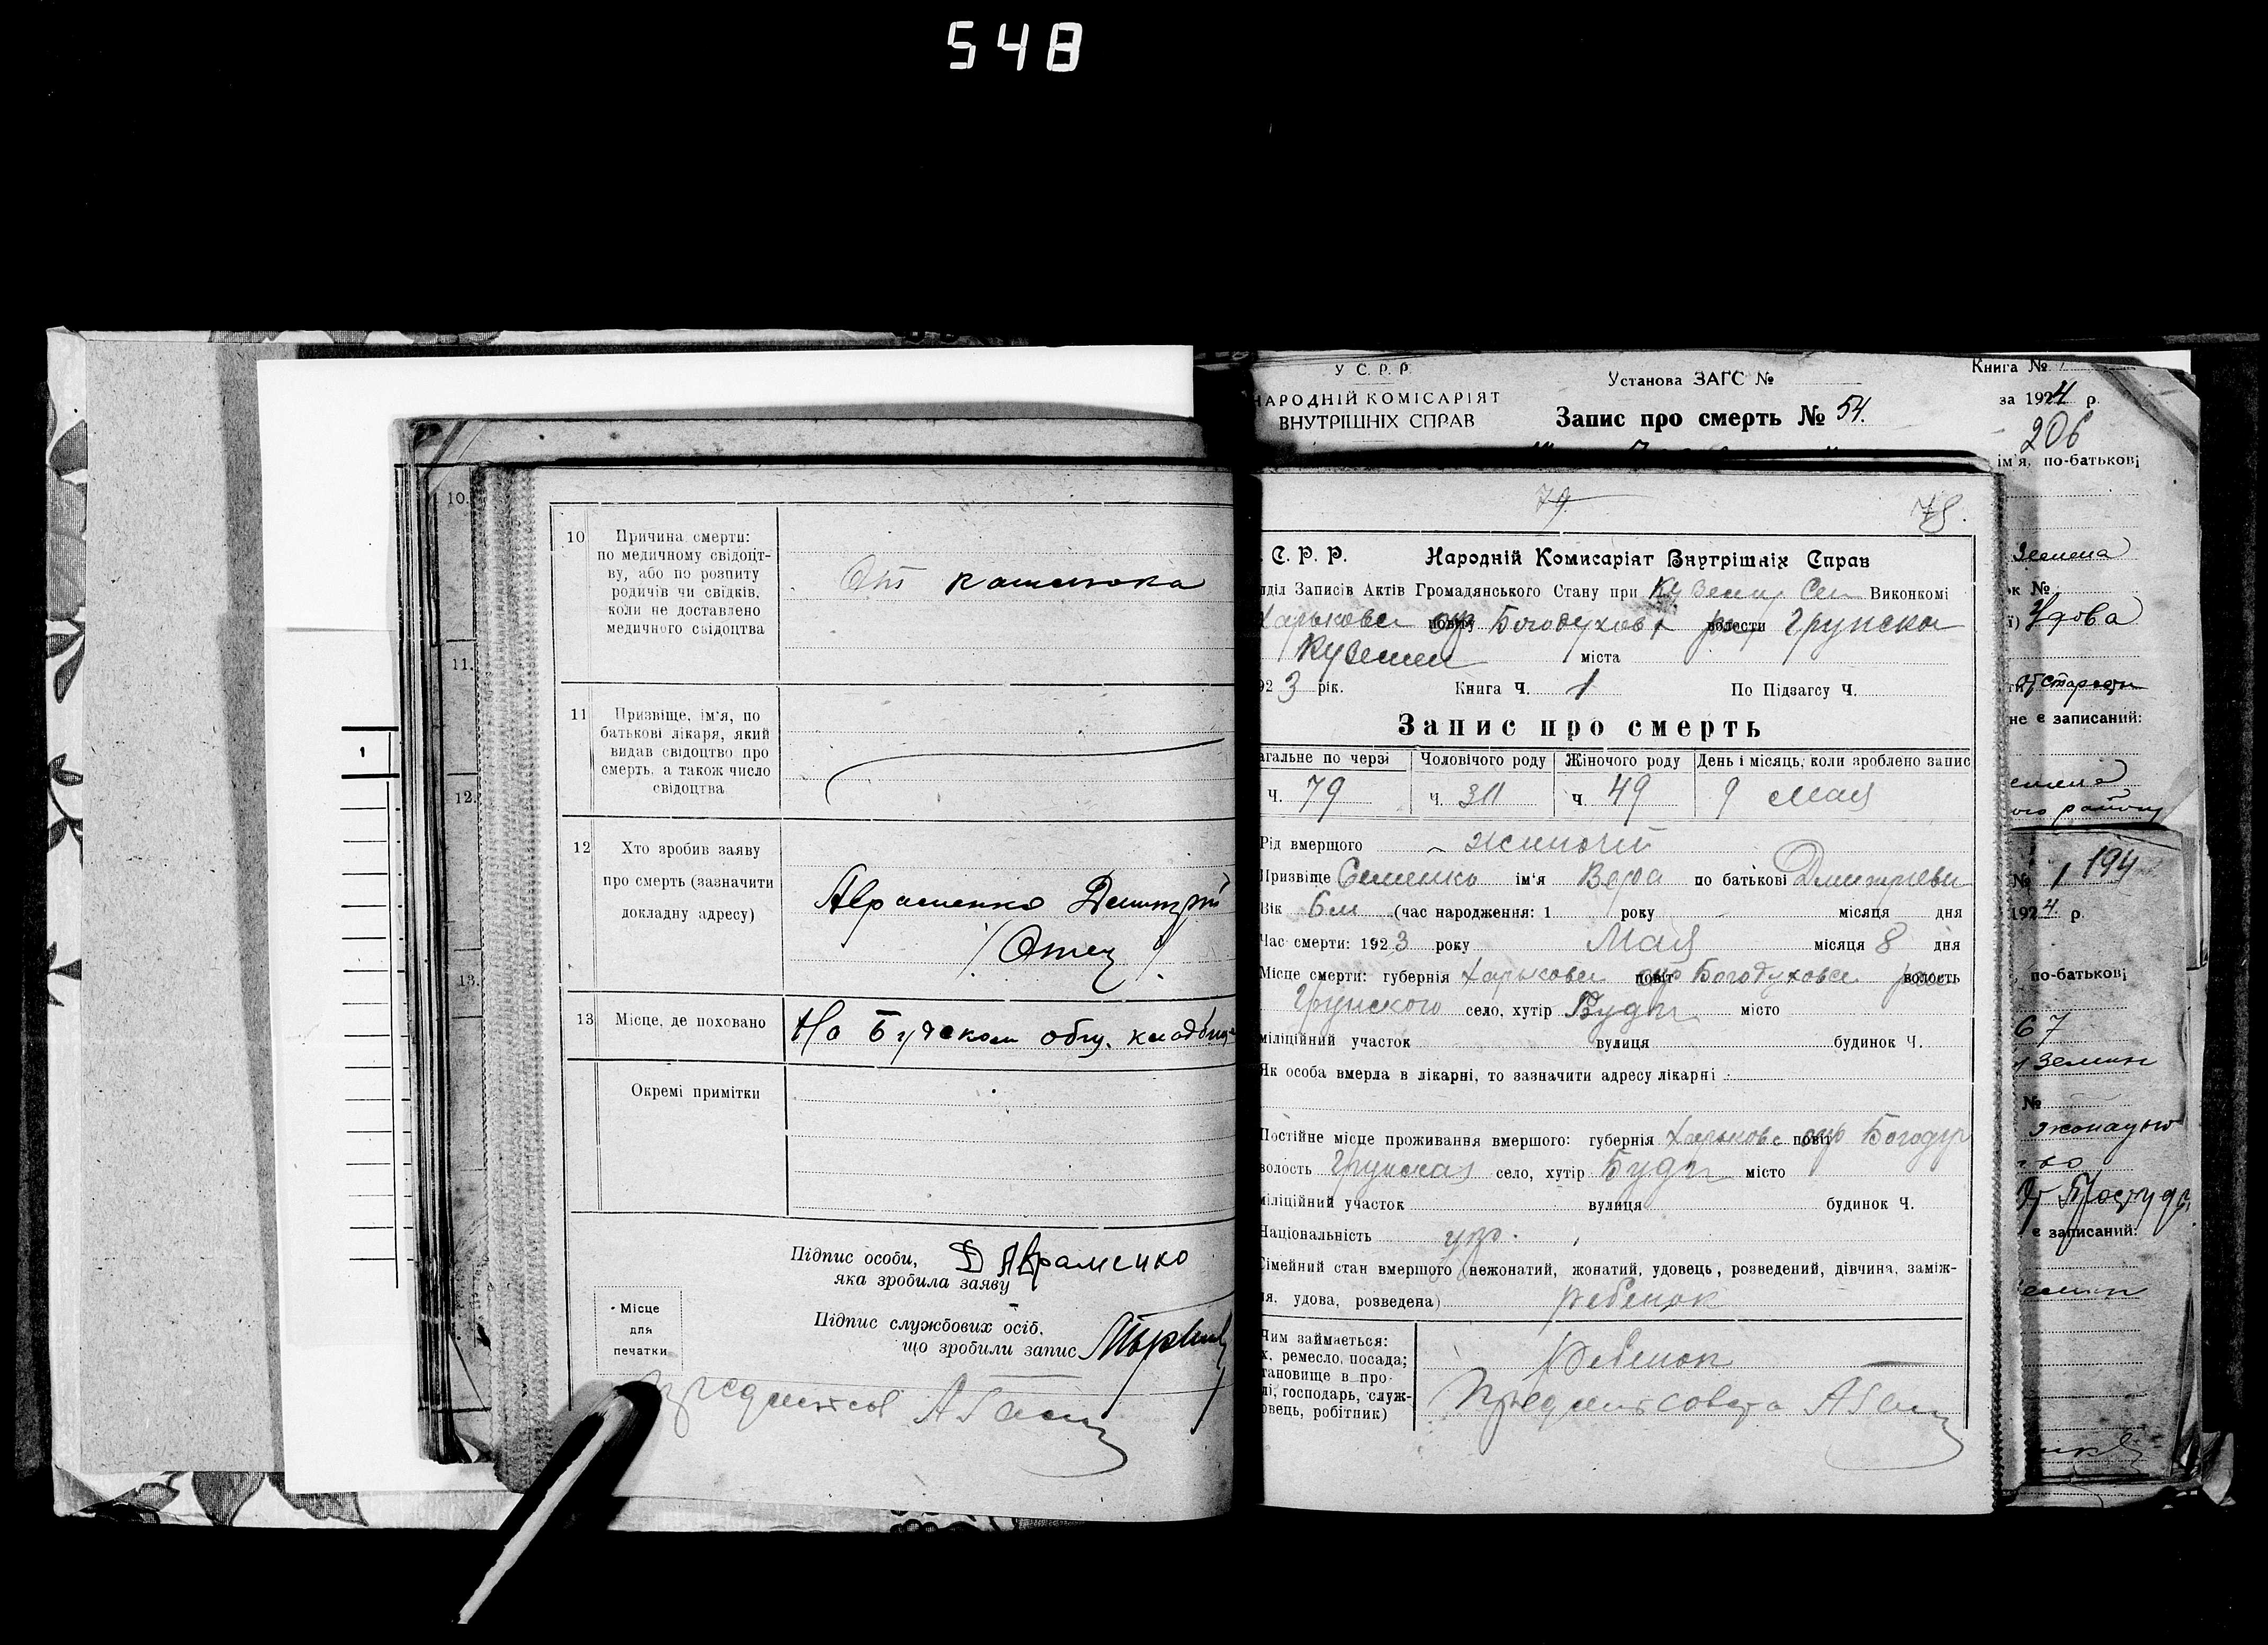 548
10.
11.
12.
13.
1
10 Причина смерти:
по медичному свідоцт-
ву, або по розпиту
родичів чи свідків,
коли не доставлено
медичного свідоцтва
От кашлюка
11 Призвіще, ім'я, по
батькові лікаря, який
видав свідоцтво про
смерть, а також число
свідоцтва
12 Хто зробив заяву
про смерть (зазначити
докладну адресу)
Авраменко Дмитрий
(Отец)
13 Місце, де поховано
На Будском общ. кладбище
Окремі примітки
Підпис особи,
яка зробила заяву
Д Авраменко
Місце
для
печатки
Підпис службових осіб,
що зробили запис
У С. Р. Р.
НАРОДНІЙ КОМІСАРІЯТ
ВНУТРІШНІХ СПРАВ
Установа ЗАГС №
Запис про смерть № 54.
Книга №
за 1924 р.
206
ім'я, по-батькові
79
С. Р. Р. Народній Комисаріят Внутрішніх Справ
діл Записів Актів Громадянського Стану при Виконкомі
Харьковск окр Богодуховск волости Грунска
міста
923 рік. Книга Ч. 1 По Підзагсу Ч.
Запис про смерть
агальне по черзі Чоловічого роду Жіночого роду День і місяць, коли зроблено запис
Ч. 79 Ч. Ч. 49 9 Мая
Рід вмерщого жиночий
Призвіще Семенко ім'я Вера по батькові Дмитриевн
Вік 6 м (час народження: 1 року місяця дня
Час смерти: 1923 року Мая місяця 8 дня
Місце смерти: губернія Харьковск повіт окр Богодуховск волость
Грунского село, хутір Буды місто
міліційний участок вулиця будинок Ч.
Як особа вмерла в лікарні, то зазначити адресу лікарні
Постійне місце проживання вмершого: губернія Харьковс повіт окр Богодух
волость Грунская село, хутір Буды місто
міліційний участок вулиця будинок Ч.
Національність укр.
Сімейний стан вмершого (нежонатий, жонатий, удовець, розведений, дівчина, заміж-
ня, удова, розведена) ребенок
Чим займається:
х, ремесло, посада;
тановище в про-
лі, господарь, служ-
овець, робітник)
Ребенок
Предсельсовета
ок №
Удова
От старости
не є записаний:
ого району
№ 1 194
1924 р.
по-батькові
67
№
От Простуды
є записаний: